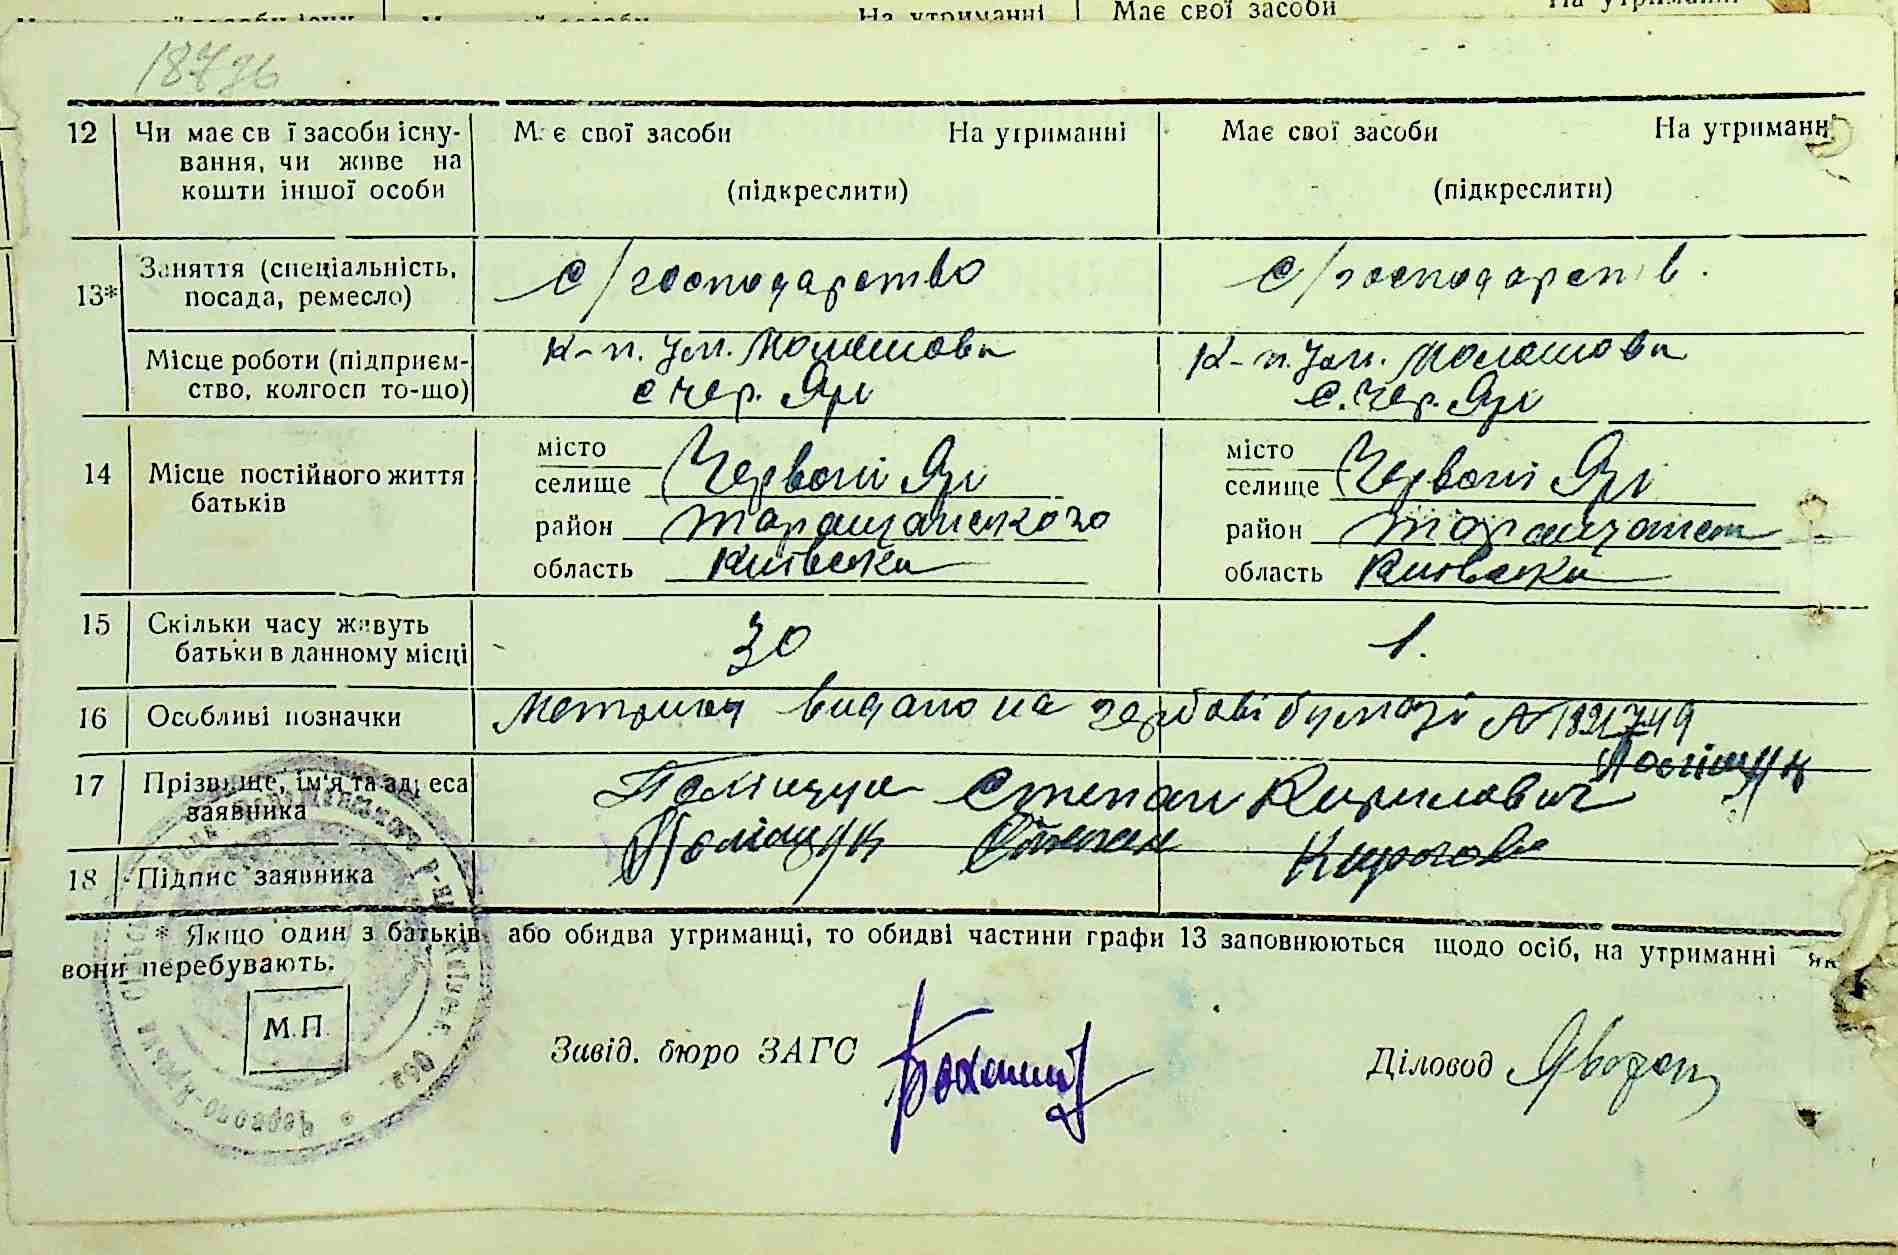 На утриманні Має свої засоби
18736
12 Чи має св ї засоби існу- М є свої засоби На утриманні Має свої засоби На утриманн
вання, чи живе на
кошти іншої особи (підкреслити) (підкреслити)
13* Заняття (спеціальність, с/господарство с/господарств.
посада, ремесло)
Місце роботи (підприєм- к-п. ум. с. Чер. Яри
ство, колгосп то-що) с Чер. Яри
14 Місце постійного життя
батьків
місто
селище Червоні Яри
район Таращанського
область Київська
місто
селище Червоні Яри
район Таращанськ
область Київська
15 Скільки часу живуть 30 1.
батьки в данному місці
16 Особливі позначки Метрику видано на гербові бумазі № 1821749
17 Прізвище, ім'я та адреса Поліщук Степан Кирилович Поліщук
заявника
18 Підпис заявника Поліщук Степан Кирилов
* Якщо один з батьків або обидва утриманці, то обидві частини графи 13 заповнюються щодо осіб, на утриманні як
вони перебувають.
М.П.
Завід. бюро ЗАГС Діловод